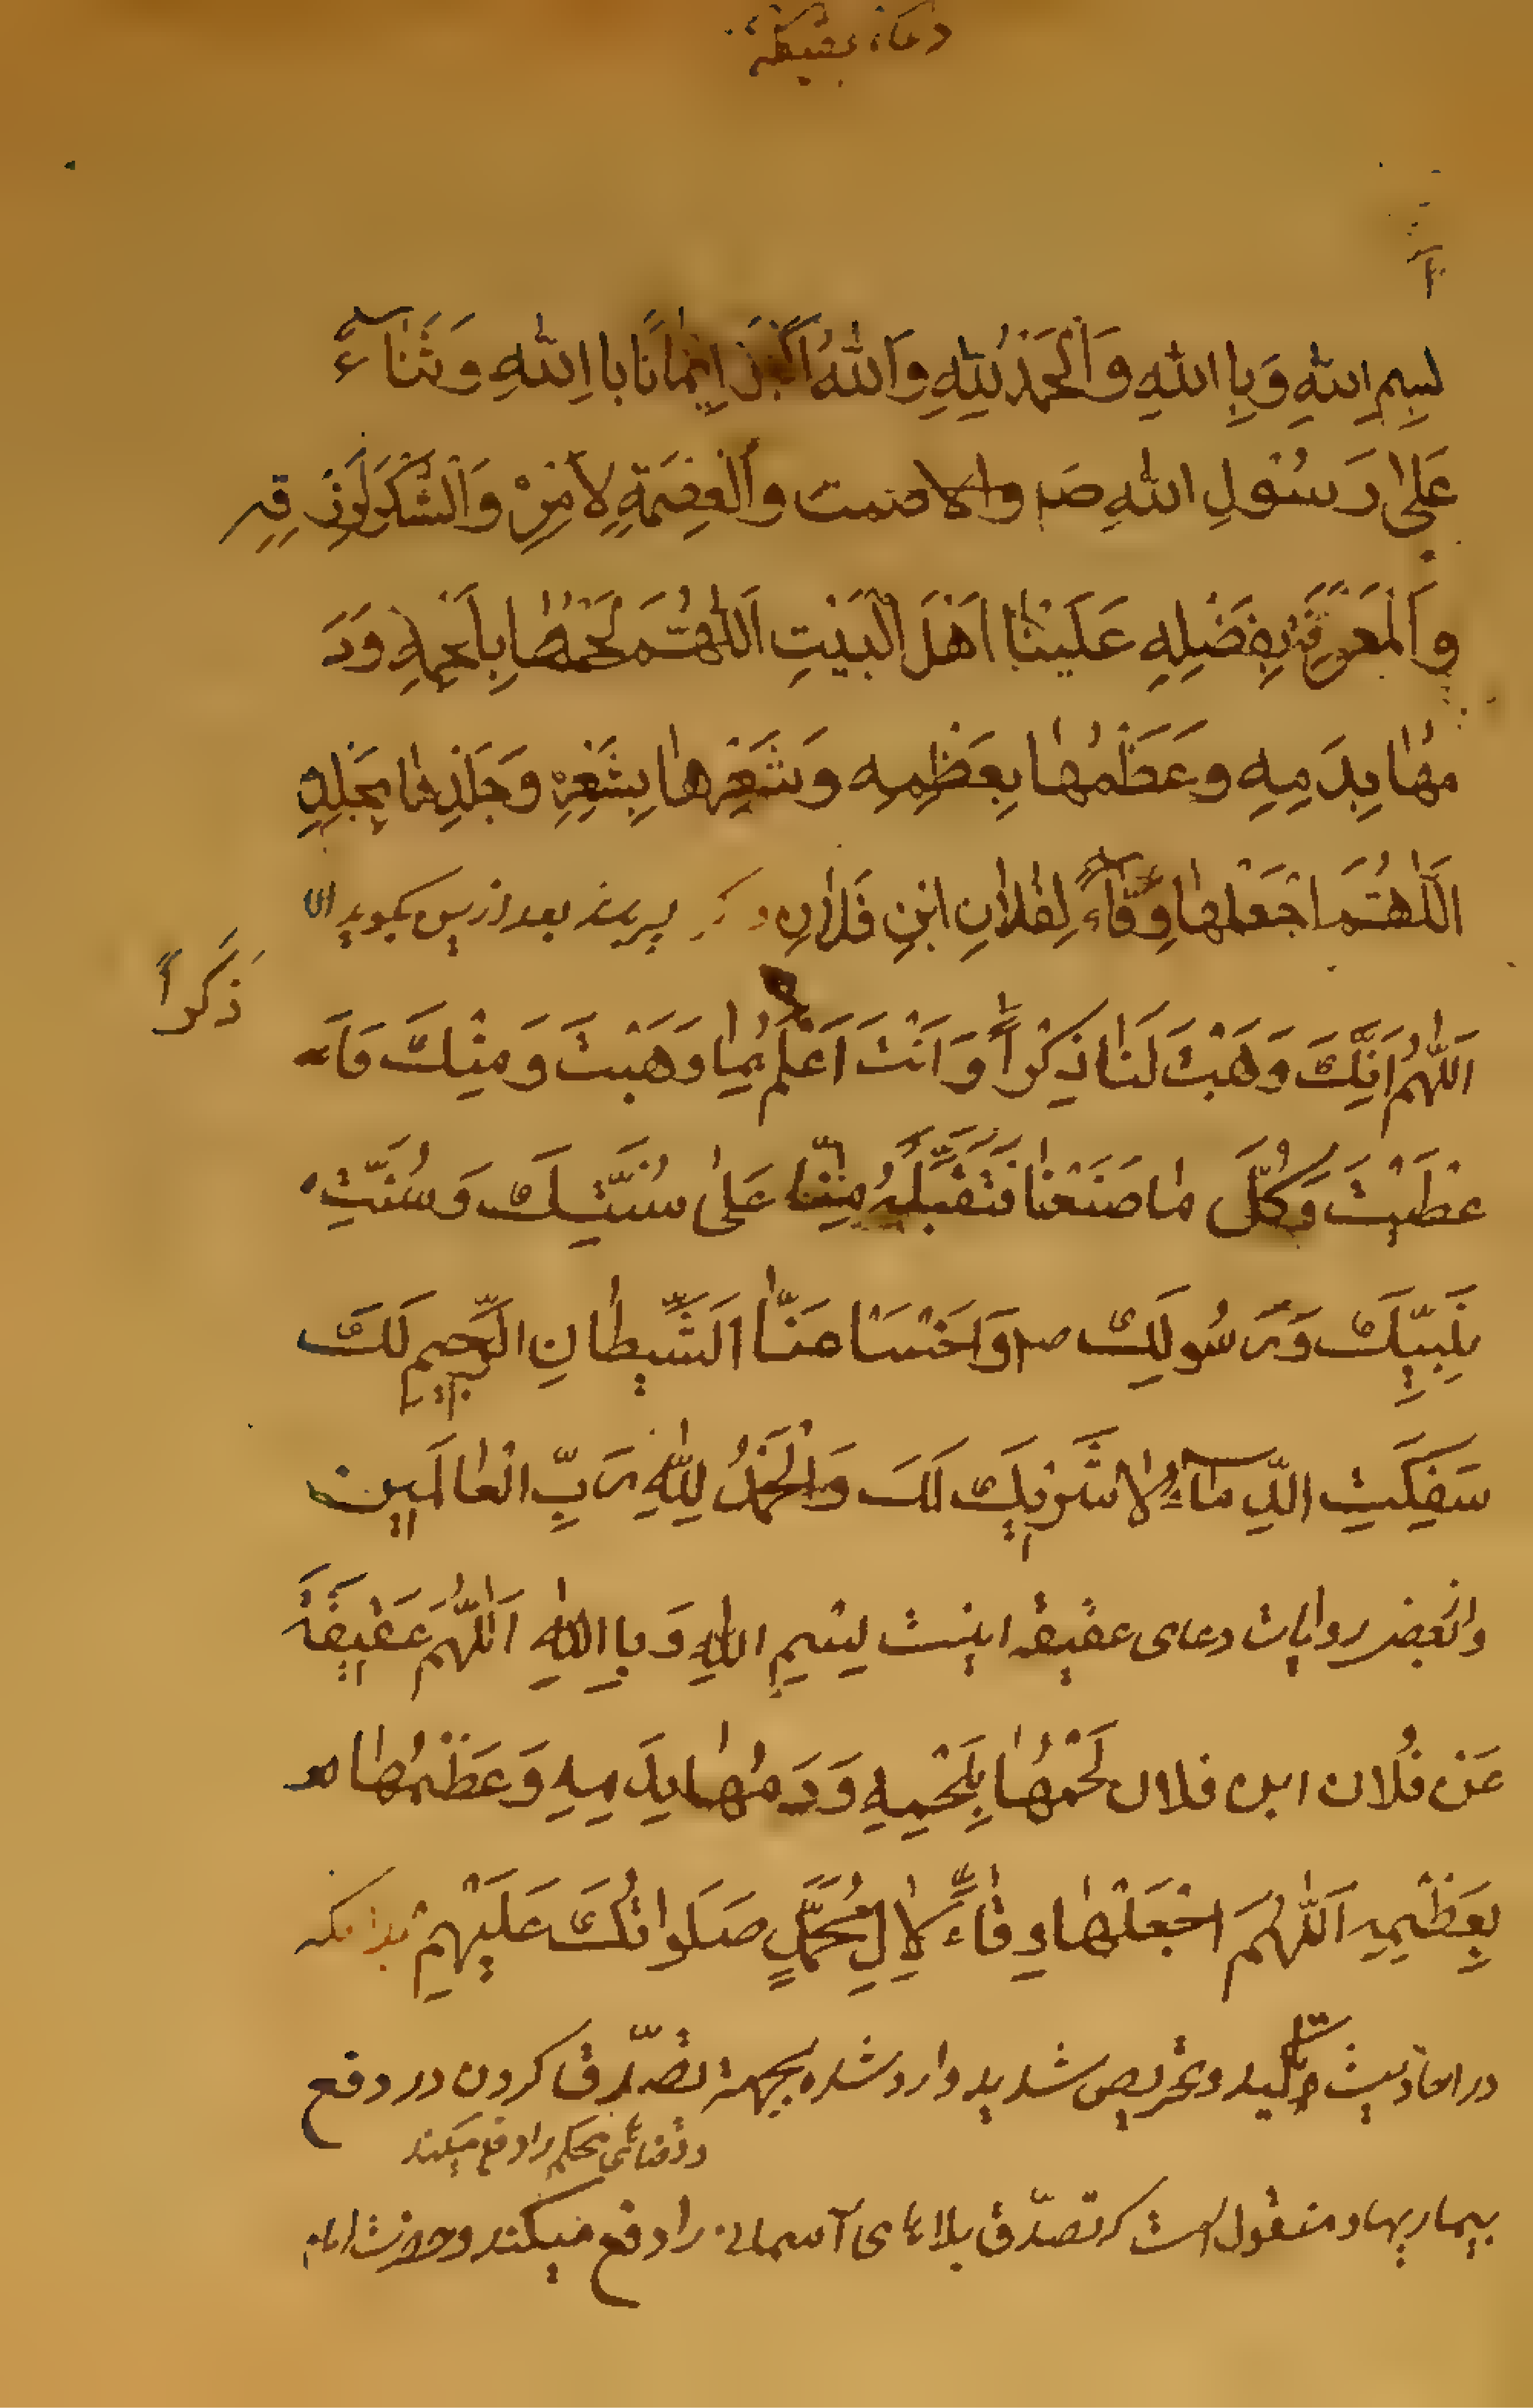 دعاء عقیقه
بِسمِ اللهِ وَبِا اللهِ وَالْحَمْدُ لِلّٰهِ وَاللهُ اَكْبَرُ اِیْمٰانًا بِا اللهِ وَ ثَنٰاءً
عَلىٰ رَسُوْلِ اللهِ صَ والاصمت وَالْعِصْمَةِ لِاَمْرِهْ وَالْشُّكْرِ لِرِزْقِهِ
وَالْمَعْرِفَةِ بِفَضْلِهِ عَلَیْنٰا اَهْلَ الْبَیْتِ اَللّٰهُمَّ لَحْمُهٰا بِلَحْمِهِ وَدَ
مُهٰا بِدَمِهِ وَعَظْمُهٰا بِعَظْمِه وَشَعْرُهٰا بِشَعْرِهْ وَجِلْدُهٰا بِجِلْدِهِ
اَللّٰهُمَّ اجْعَلْهٰا وِقٰاءً لِفُلاٰنِ ابْنِ فَلاٰنِ ذکر پسر بعد از پس بگوید
ذَكَراً
اَللّٰهُمَّ اِنَّكَ وَهَبْتَ لَنٰا ذِكْراً وَ اَنْتَ اَعْلَمُ بِمٰا وَهَبْتَ وَ مِنْكَ مَاَ
عْطَیْتَ وَكُلَّ مٰا صَنَعْنٰا فَتَقَبَّلْهُ مِنّٰا عَلىٰ سُنَّتِكَ وَ سُنَّتِ
نَبِیِّكَ وَ رَسُولِكَ ص وَاخْسَأ عَنّٰا الشَّیْطٰانِ الرَّجِیمِ لَكَ
سَفِكَتِ الدِّمٰاءُ لاٰ شَرِیكَ لَكَ وَالْحَمْدُ لِلّٰهِ رَبِّ الْعٰالَمِینَ
و از بعضی روایات دعای عقیقه اینست بِسْمِ اللهِ وَ بِا اللهِ اَللّٰهُمَّ عَقِیقَةً
عَنْ فُلان ابن فلان لَحْمُهٰا بِلَحْمِهِ وَ دَمُهٰا بِدَمِهِ وَ عَظْمُهٰا
بِعَظْمِهِ اَللّٰهُمَّ اجْعَلْهٰا وِقٰاءً لِاٰلِ مُحَمَّدٍ صَلَوٰاتُكَ عَلَیْهِمْ بدانکه
در احادیث تأکید و تحریص شدید وارد شده بجهة تصدّق کردن در دفع
و قضای محکم را دفع میکند
بیماریها و منقول است که تصدّق بلاهای آسمانی را دفع میکند و حضرت امام